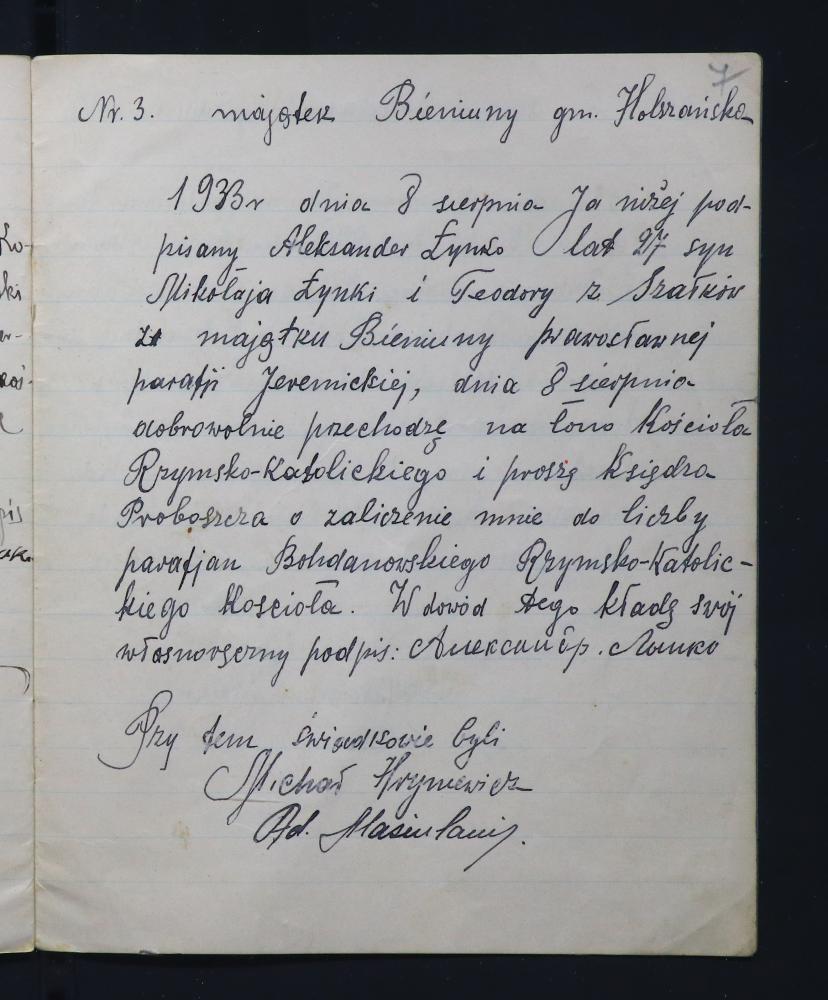 7
Nr. 3. majątek Bieniuny gm. Holszańska
1933r dnia 8 sierpnia Ja niżej pod-
pisany Aleksander Łynko lat 27 syn
Mikołaja Łynki i Teodory z Szałków
z majątku Bieniuny prawosławnej
parafji Jeremickiej, dnia 8 sierpnia
dobrowolnie przechodzę na łono Kościoła
Rzymsko-Katolickiego i proszę Księdza
Proboszcza o zaliczenie mnie do liczby
parafjan Bohdanowskiego Rzymsko-Katolic-
kiego Kościoła. W dowód tego kładę swój
własnoręczny podpis: Александр.
Przy tem świadkowie byli
Michał Hryniewicz
Ad.